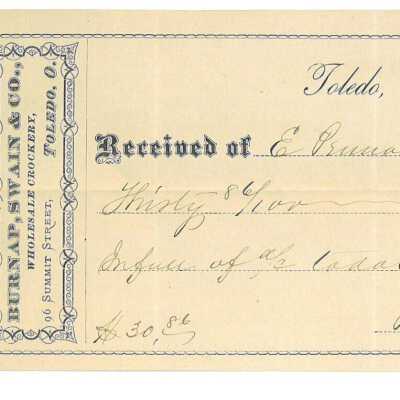 BURNAP, SWAIN & CO.,
WHOLESALE CROCKERY,
96 SUMMIT STREET, TOLEDO, O.
Toledo,
Received of E
Thirty 86/100
In full of a/c to da
$30,86